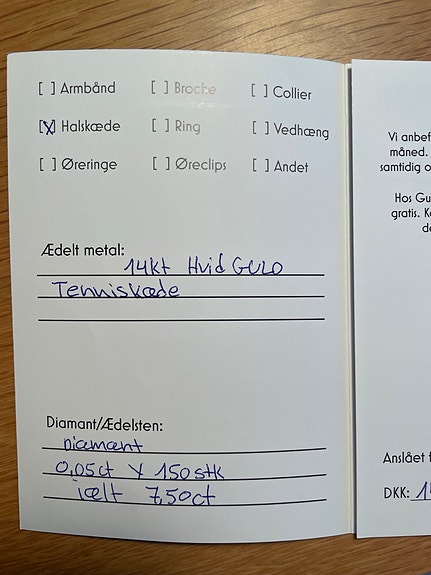 [ ] Armbånd [ ] Broche [ ] Collier
[X] Halskæde [ ] Ring [ ] Vedhæng
[ ] Øreringe [ ] Øreclips [ ] Andet
Ædelt metal:
14kt Hvid GULD
Tenniskæde
Diamant/Ædelsten:
Diamant
0,05ct x 150 stk
ialt 7,50ct
Vi anbef
måned.
samtidig o
Hos Gu
gratis. K
de
Anslået
DKK: 1